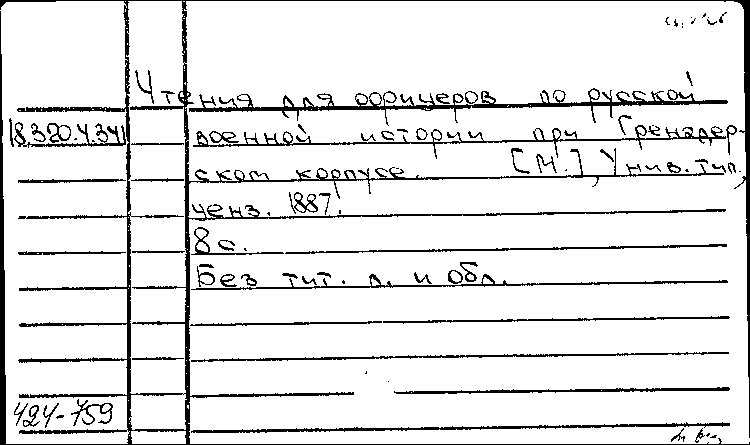 Чтения для офицеров по русской
18.320.4.341
военной истории при Гренадер-
ском корпусе. [М.], Унив. тип.,
ценз. 1887.
8 с.
Без тит. л. и обл.
424-759